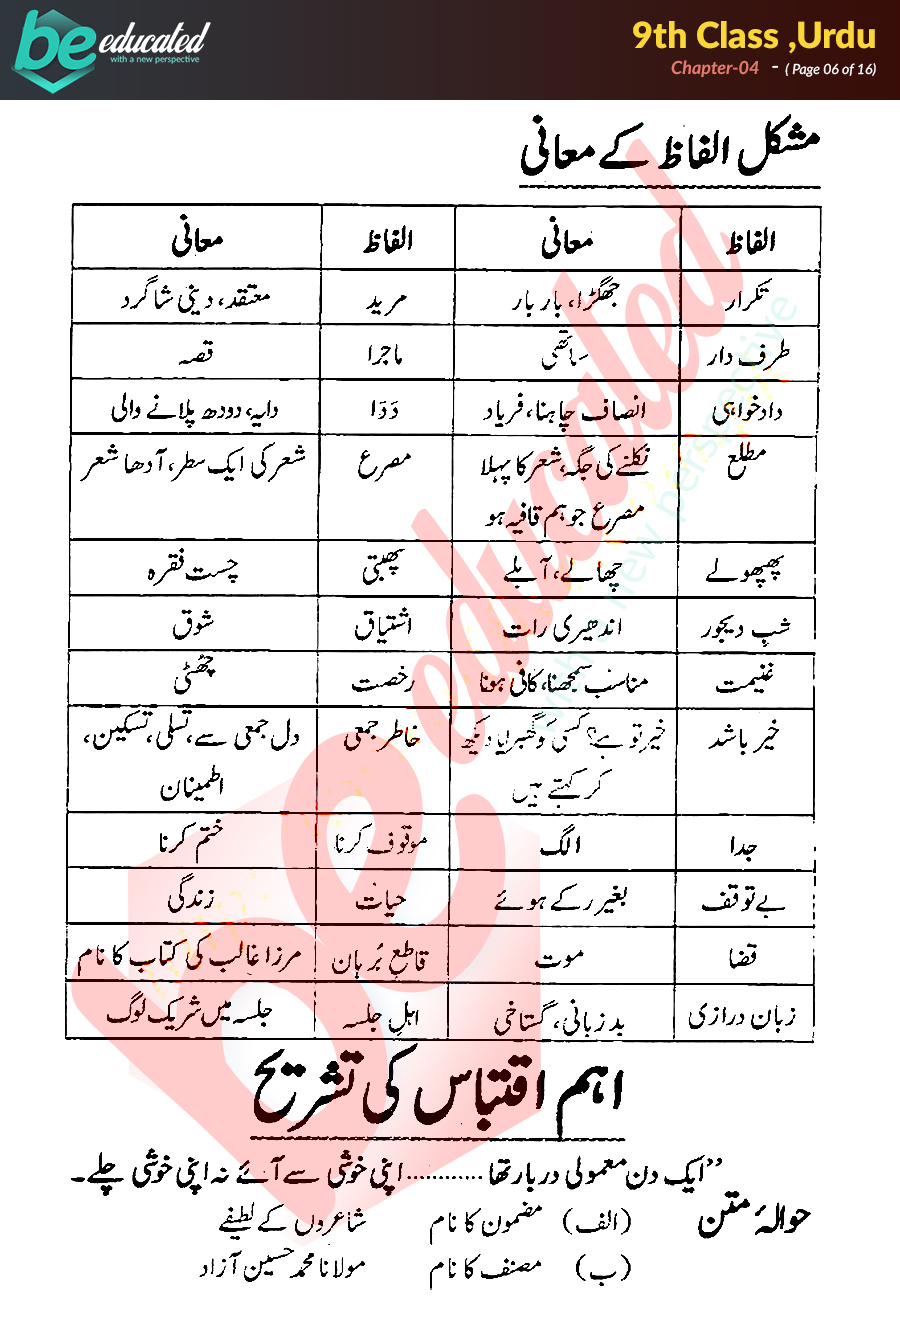 be educated
with a new perspective
9th Class ,Urdu
Chapter-04 - ( Page 06 of 16)
مشکل الفاظ کے معانی
الفاظ معانی الفاظ معانی
تکرار جھگڑا، بار بار مرید معتقد، دینی شاگرد
طرف دار ساتھی ماجرا قصہ
دادخواہی انصاف چاہنا، فریاد دَدَا دایہ، دودھ پلانے والی
مطلع نکلنے کی جگہ، شعر کا پہلا مصرع شعر کی ایک سطر، آدھا شعر
مصرع جو ہم قافیہ ہو
پھپھولے چھالے، آبلے پھبتی چست فقرہ
شبِ دیجور اندھیری رات اشتیاق شوق
غنیمت مناسب سمجھنا، کافی ہونا رخصت چھٹی
خیر باشد خیر تو ہے؟ کسی کو گھبرایا دیکھ خاطر جمعی دل جمعی سے، تسلی، تسکین،
کر کہتے ہیں اطمینان
جدا الگ موقوف کرنا ختم کرنا
بے توقف بغیر رکے ہوئے حیات زندگی
قضا موت قاطع بُرہان مرزا غالب کی کتاب کا نام
زبان درازی بد زبانی، گستاخی اہلِ جلسہ جلسہ میں شریک لوگ
اہم اقتباس کی تشریح
”ایک دن معمولی دربار تھا ............ اپنی خوشی سے آئے نہ اپنی خوشی چلے۔
حوالۂ متن (الف) مضمون کا نام شاعروں کے لطیفے
(ب) مصنف کا نام مولانا محمد حسین آزاد
be educated
with a new perspective